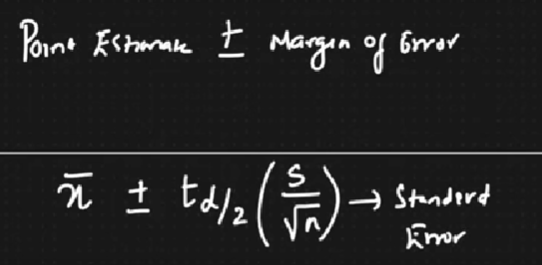 Point Estimate ± Margin of Error
x̄ ± tα/2 (s/√n) → Standard
Error